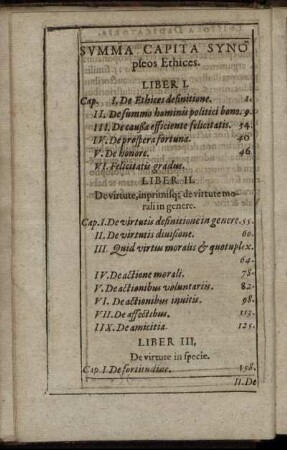 SVMMA CAPITA SYNO
pseos Ethices.
LIBER I.
Cap. I. De Ethices definitione. 1.
II. De summo hominis politici bono. 9.
III. De caussa efficiente felicitatis. 34.
IV. De prospera fortuna. 40
V. De honore. 46
VI. Felicitatis gradus.
LIBER II.
De virtute, inprimisq; de virtute mo-
rali in genere.
Cap. I. De virtutis definitione in genere. 55.
II. De virtutis diuisione. 60.
III. Quid virtus moralis & quotuplex.
64.
IV. De actione morali. 78.
V. De actionibus voluntariis. 82.
VI. De actionibus inuitis. 98.
VII. De affectibus. 113.
IIX. De amicitia. 125.
LIBER III,
De virtute in specie.
Cap. I. De fortitudine. 158.
II. De